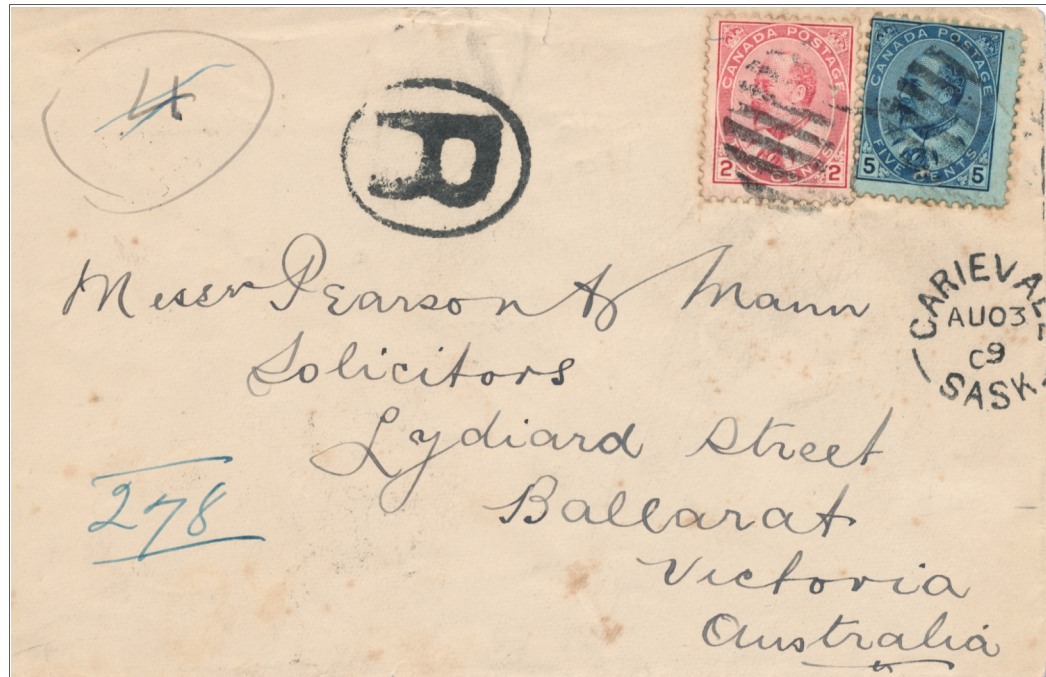 4
R
CANADA POSTAGE
2 CENTS 2
CANADA POSTAGE
5 FIVE CENTS 5
CARIEVAL
AU 03
09
SASK
Messrs Pearson & Mann
Solicitors
Lydiard Street
Ballarat
Victoria
Australia
278